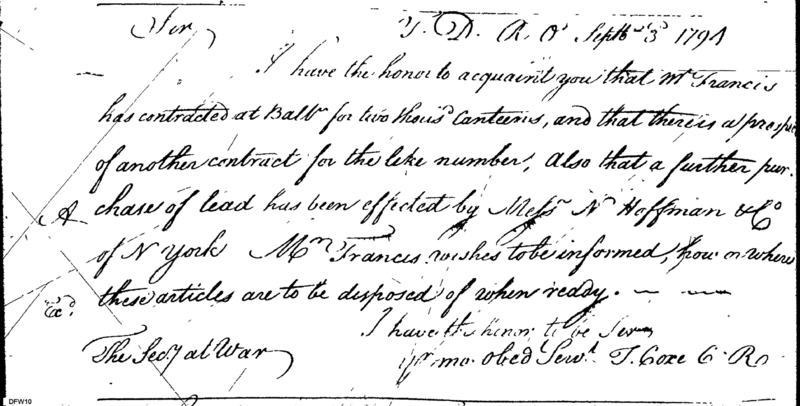 Sir, T. D. R. O. Septbr 3d 1794
I have the honor to acquaint you that Mr Francis
has contracted at Balte for two thousd Canteens, and that there is a prospect
of another contract for the like number, Also that a further pur-
A chase of lead has been effected by Messrs N Hoffman & Co
of N York Mr Francis wishes to be informed, how or where
Exd. these articles are to be disposed of when ready.
I have the honor to be Sir
The Secy at War yr mo. obed Servt. T. Coxe C. R.
DFW10